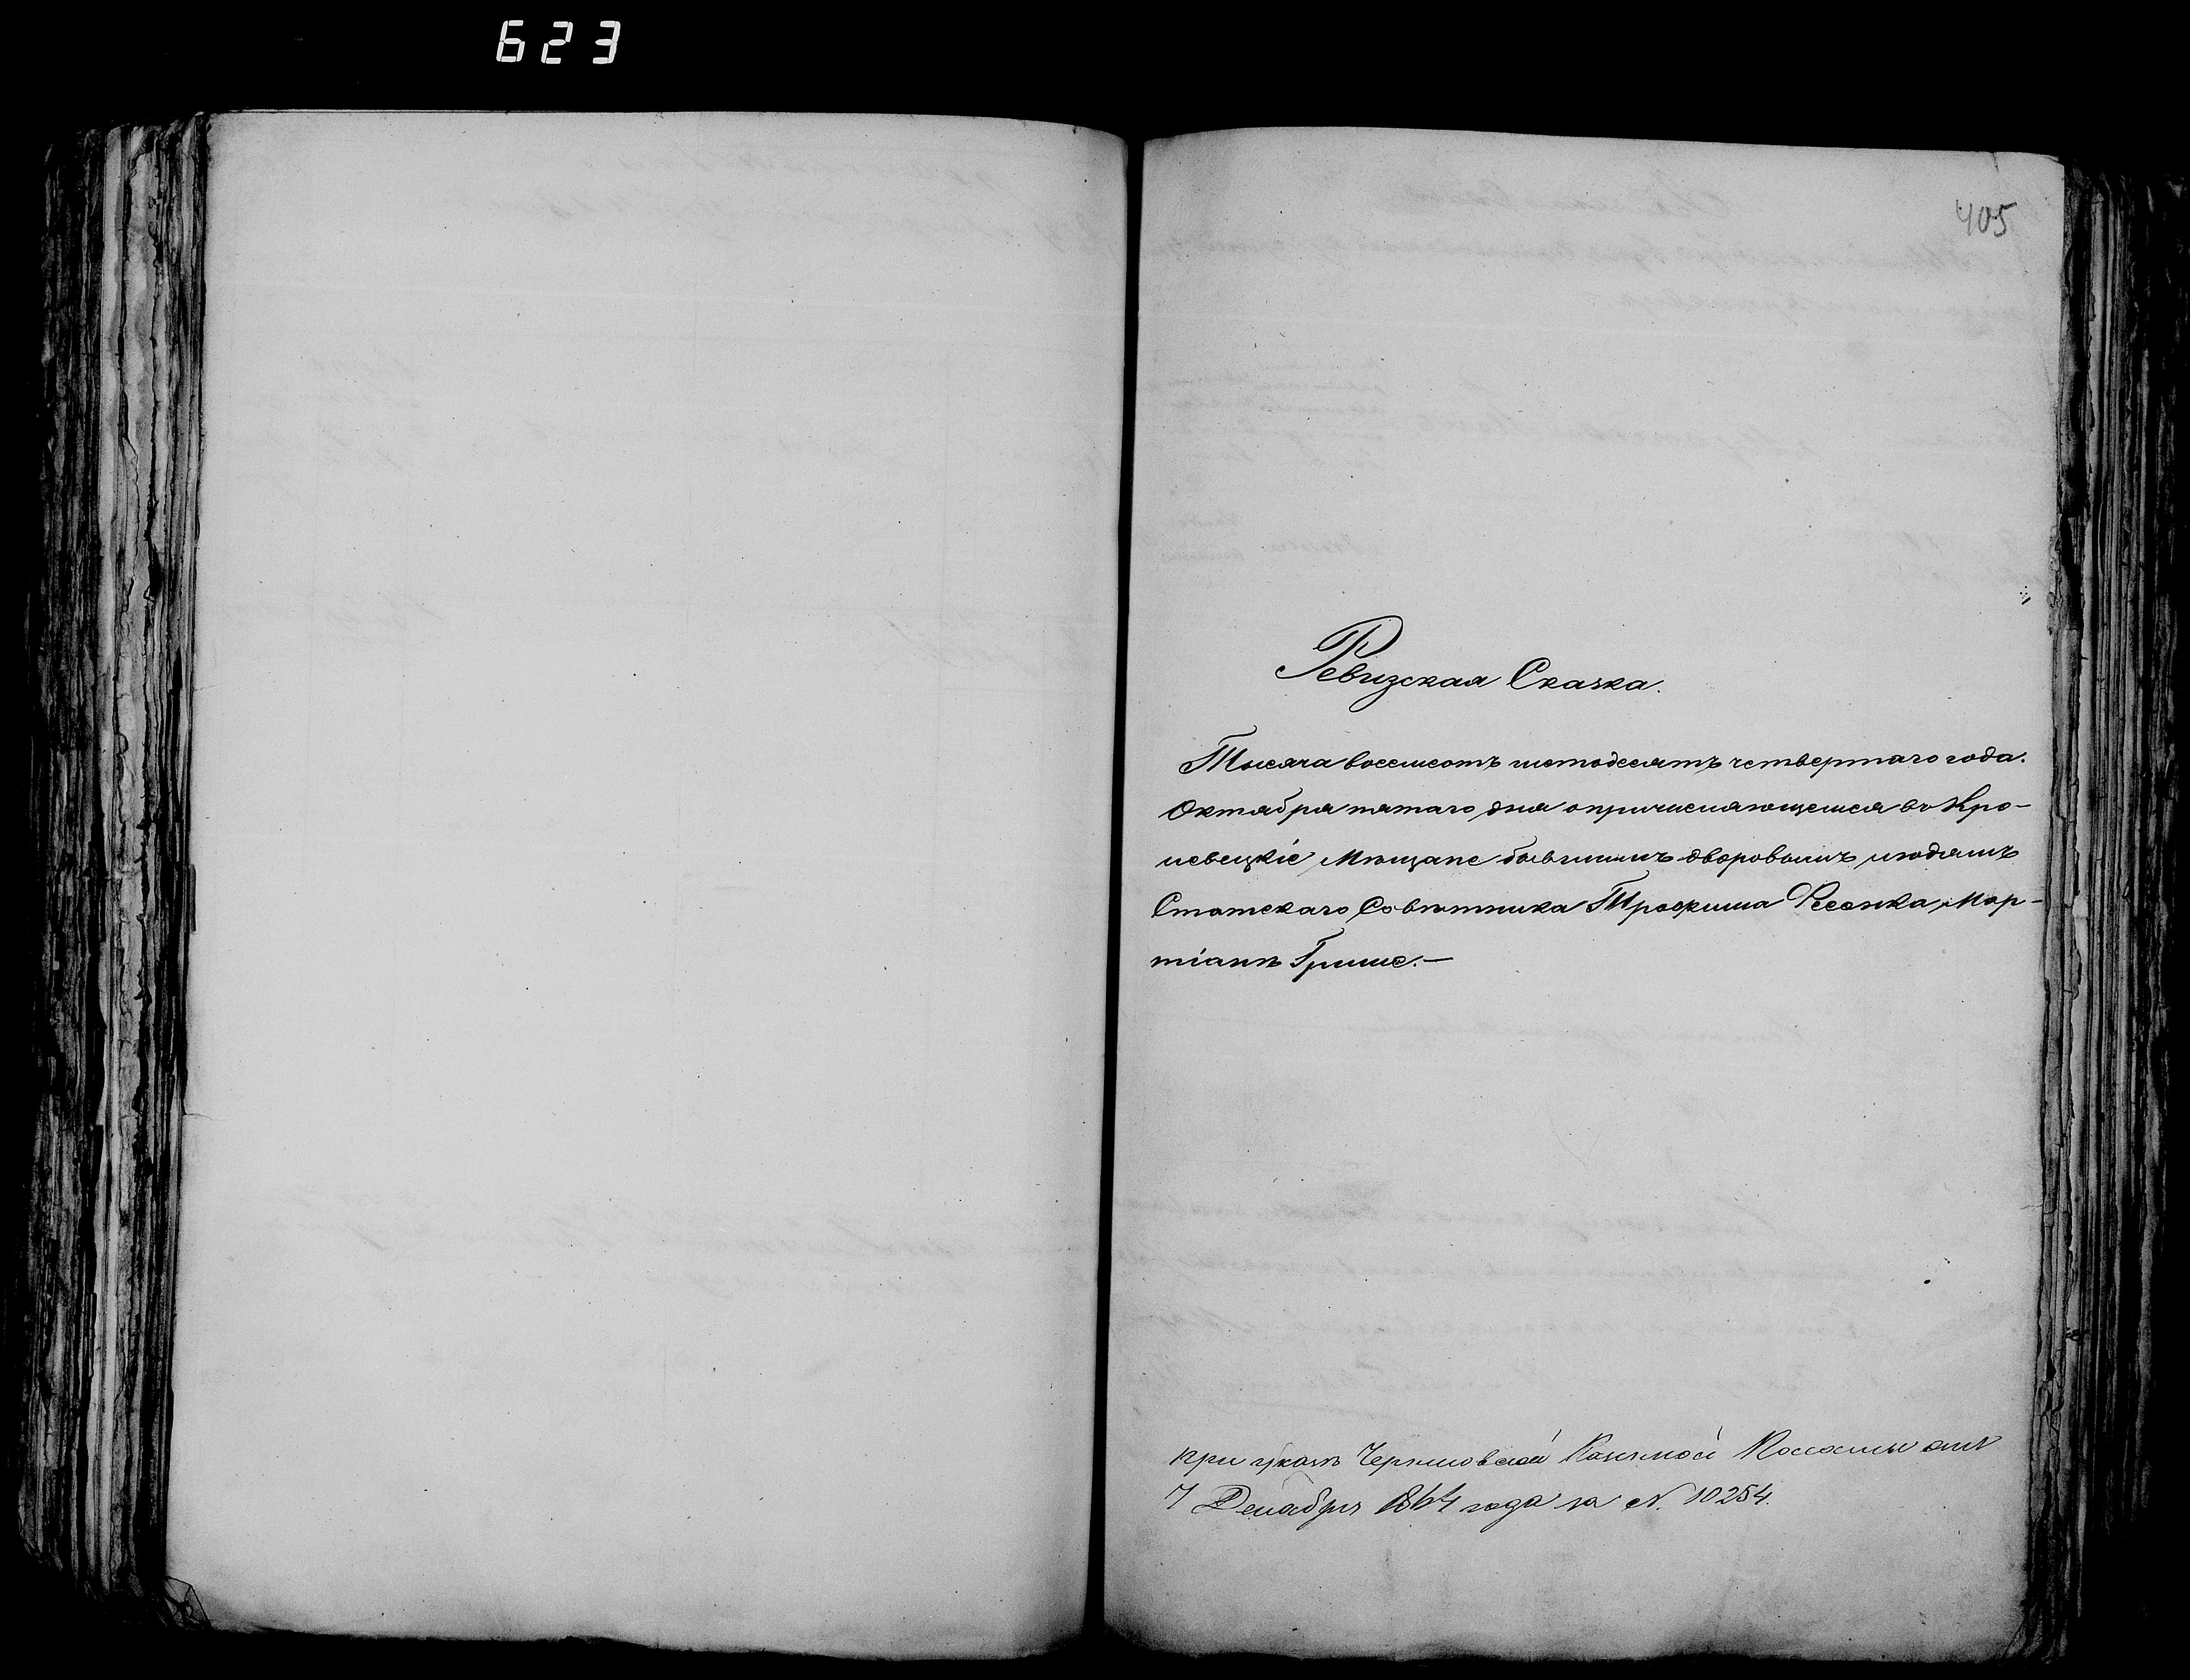 623
405
Ревизская Сказка.
Тысяча восемсотъ шстодесятъ четвертаго года.
Октября пятаго дня о причисляющемся въ Кро-
левецкіе Мѣщане бывшимъ дворовымъ людямъ
Статскаго Совѣтника Трофима Рсазка, Мар-
тіанѣ Гришѣ.—
при указѣ Черниговской Казенной Палаты отъ
7 Декабря 1864 года за N. 10254.